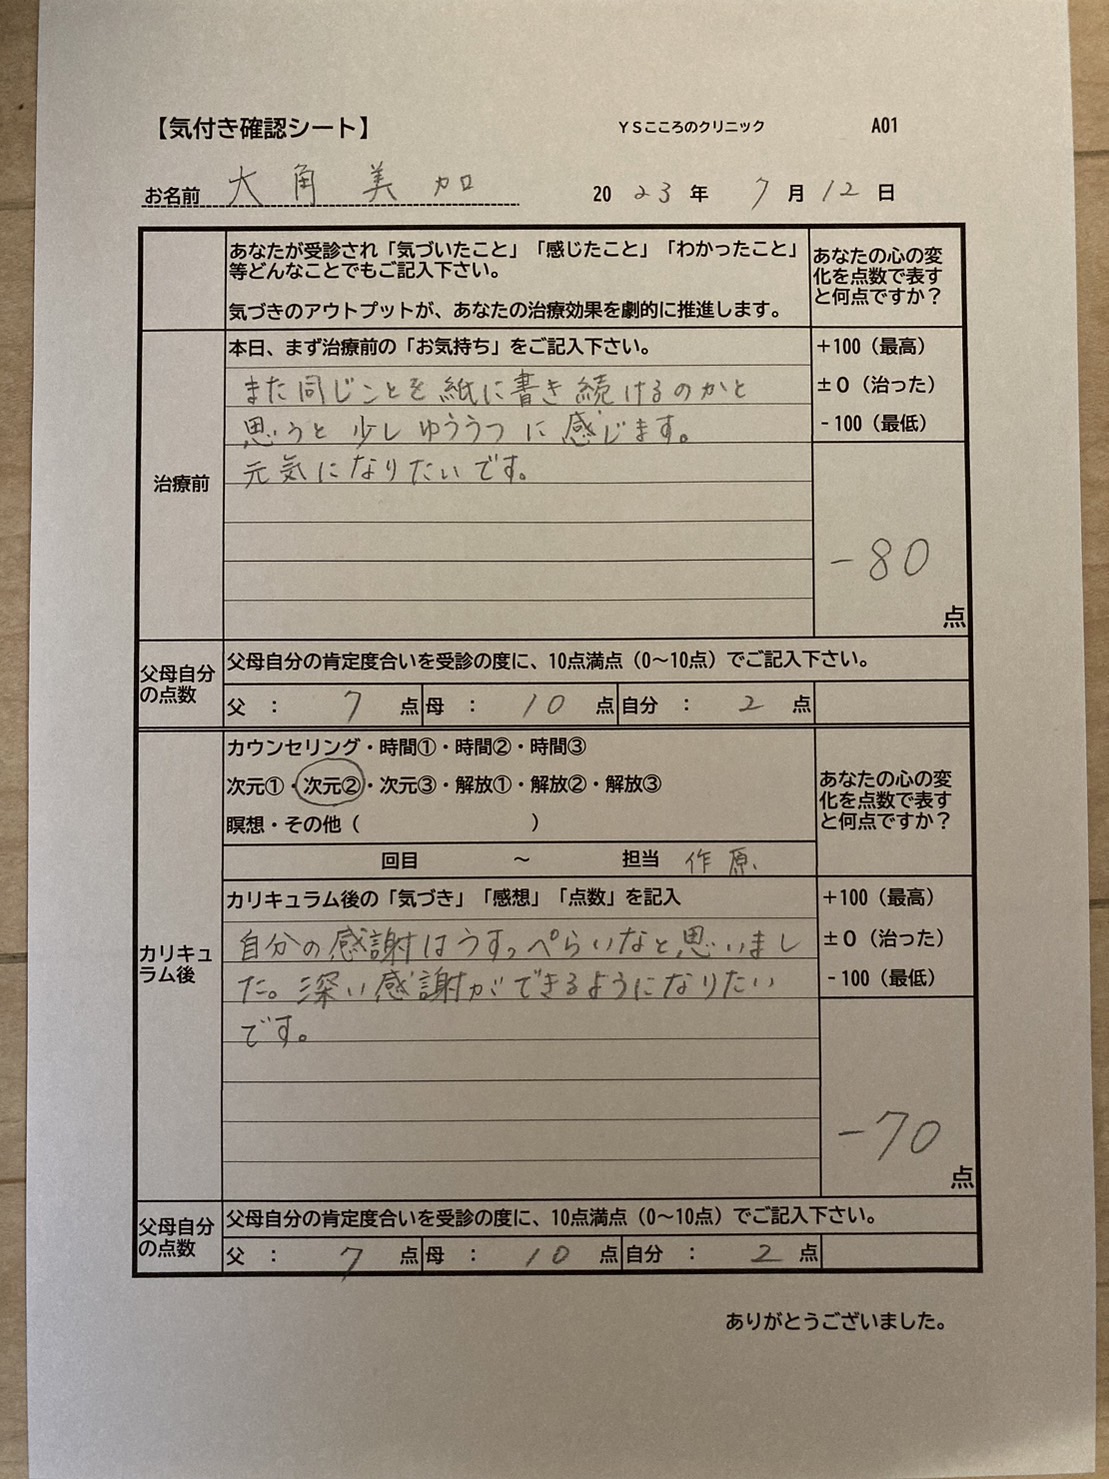 【気付き確認シート】 YSこころのクリニック A01
お名前 大角 美加 2023年 7月12日
あなたが受診され「気づいたこと」「感じたこと」「わかったこと」
等どんなことでもご記入下さい。
気づきのアウトプットが、あなたの治療効果を劇的に推進します。
あなたの心の変
化を点数で表す
と何点ですか？
治療前
本日、まず治療前の「お気持ち」をご記入下さい。
また同じことを紙に書き続けるのかと
思うと少しゆううつに感じます。
元気になりたいです。
+100（最高）
±0（治った）
-100（最低）
-80
点
父母自分
の点数
父母自分の肯定度合いを受診の度に、10点満点（0〜10点）でご記入下さい。
父 ： 7 点 母 ： 10 点 自分 ： 2 点
カウンセリング・時間①・時間②・時間③
次元①・次元②・次元③・解放①・解放②・解放③
瞑想・その他（ ）
回目 〜 担当 作原、
あなたの心の変
化を点数で表す
と何点ですか？
カリキュ
ラム後
カリキュラム後の「気づき」「感想」「点数」を記入
自分の感謝はうすっぺらいなと思いまし
た。深い感謝ができるようになりたい
です。
+100（最高）
±0（治った）
-100（最低）
-70
点
父母自分
の点数
父母自分の肯定度合いを受診の度に、10点満点（0〜10点）でご記入下さい。
父 ： 7 点 母 ： 10 点 自分 ： 2 点
ありがとうございました。